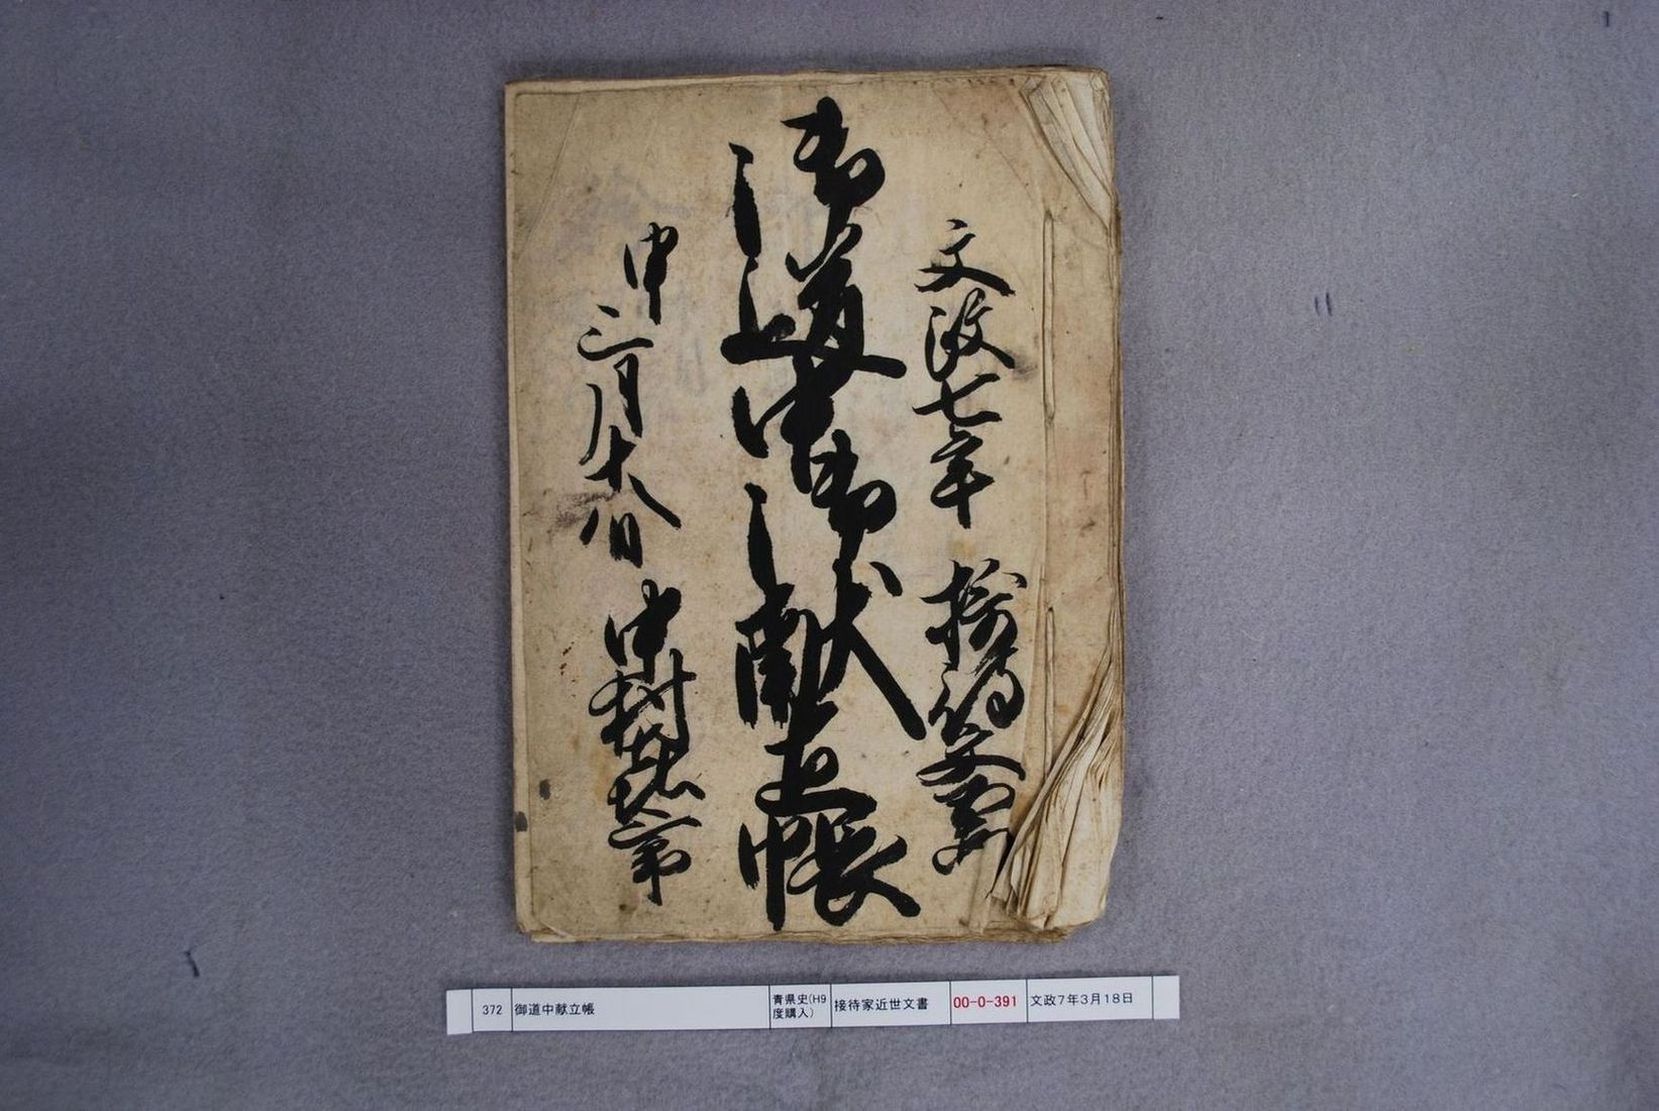 文政七年
御道中御献立帳
申三月十八日
中村
372 御道中献立帳 青県史(H9度購入) 接待家近世文書 00-0-391 文政7年3月18日